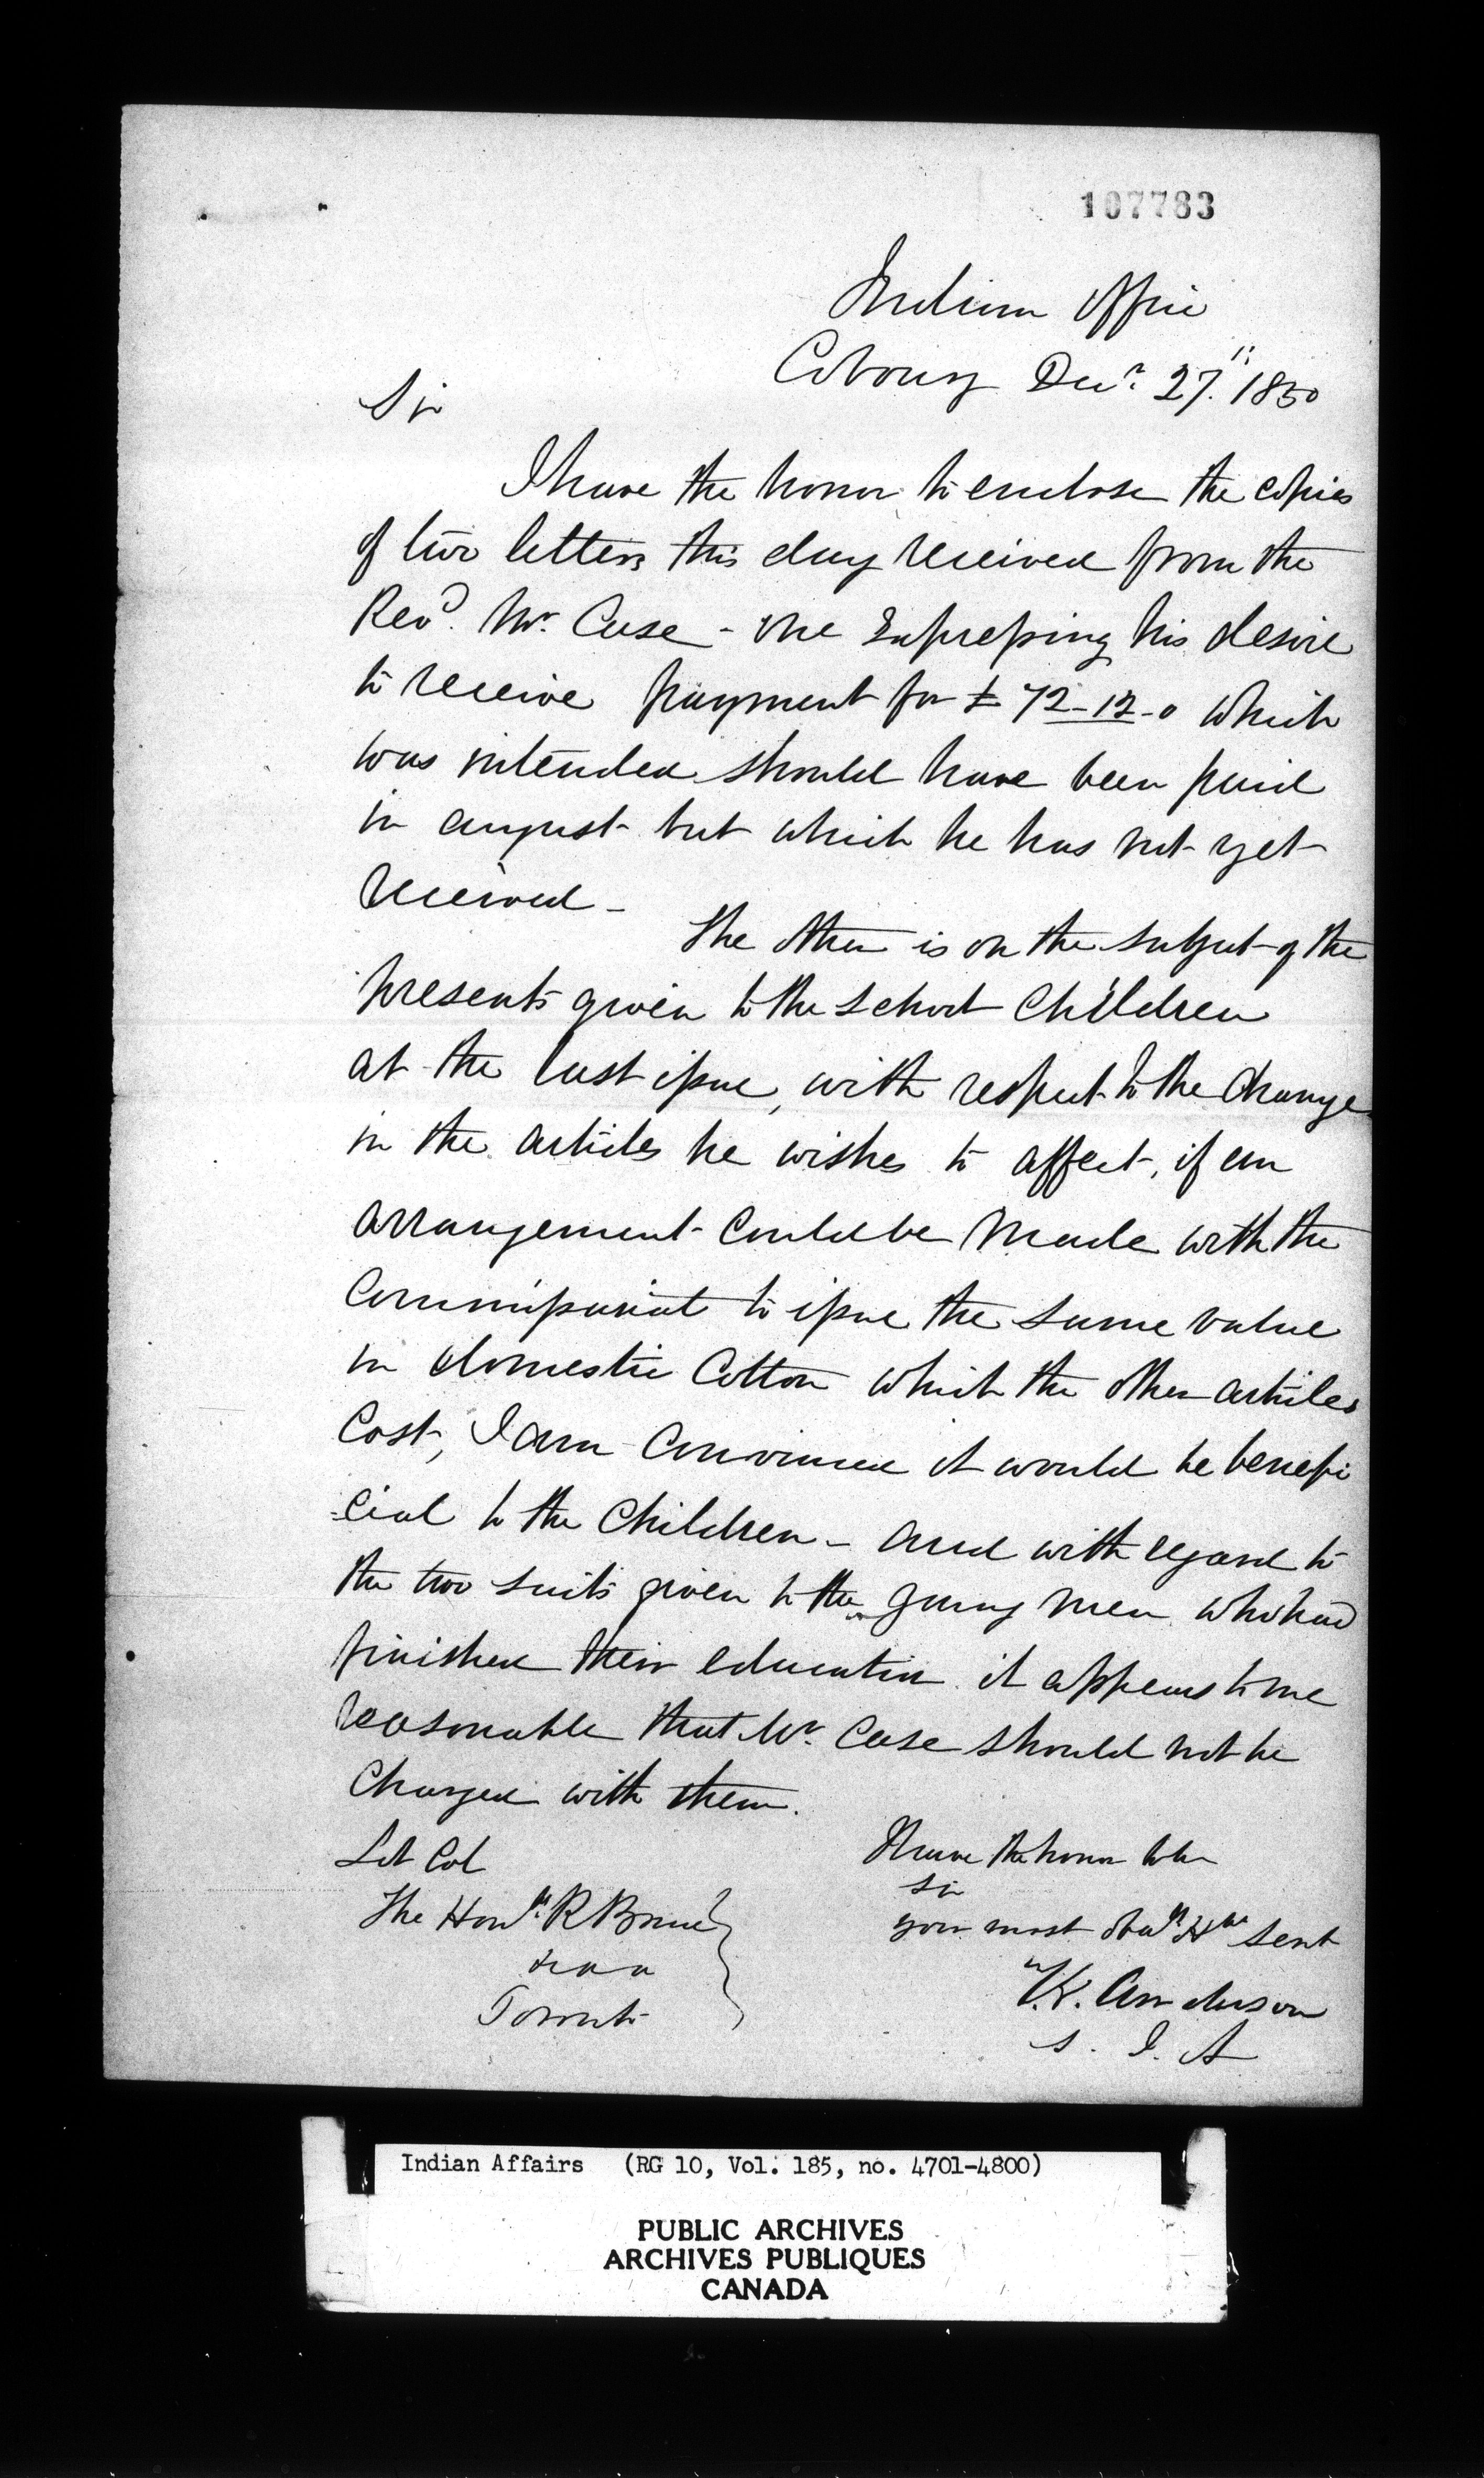 107783
Indian Office
Cobourg Decr. 27." 1850
Sir
I have the honor to enclose the copies
of two letters this day received from the
Revd. Mr. Case - one Expressing his desire
to receive payment for £ 72-12-0 which
was intended should have been paid
in august but which he has not yet
received -
The other is on the subject of the
presents given to the school Children
at the last issue, with respect to the change
in the articles he wishes to affect, if an
arrangement could be made with the
Commissariat to issue the same value
in domestic Cotton which the other articles
Cost, I am Convinced it would be benefi
=cial to the Children - and with regard to
the two suits given to the young men who had
finished their education it appears to me
reasonable that Mr. Case should not be
Charged with them.
I have the honor to be
Sir
your most obedt. Hble Servt
T.G. Anderson
S. I. A
Lt Col
The Honble. R Bruce
Toronto
Indian Affairs (RG 10, Vol. 185, no. 4701-4800)
PUBLIC ARCHIVES
ARCHIVES PUBLIQUES
CANADA